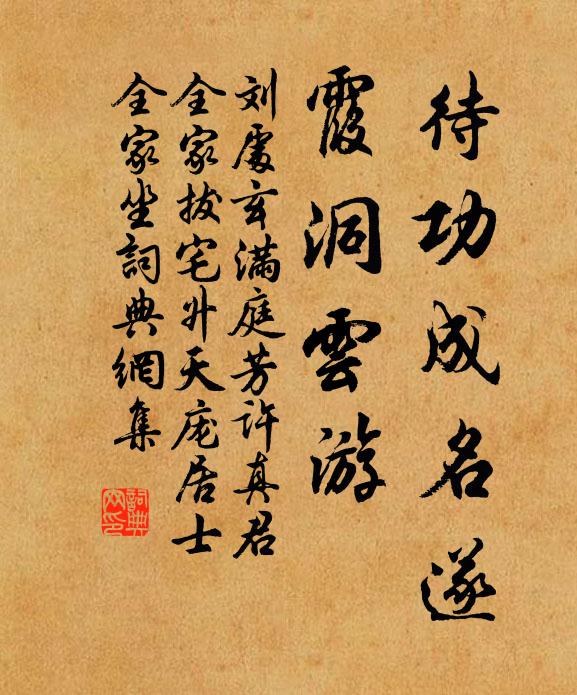 待功成名遂
霞洞雲游
刘處玄满庭芳许真君
全家拔宅升天庞居士
全家坐詞典網集
詞典网印